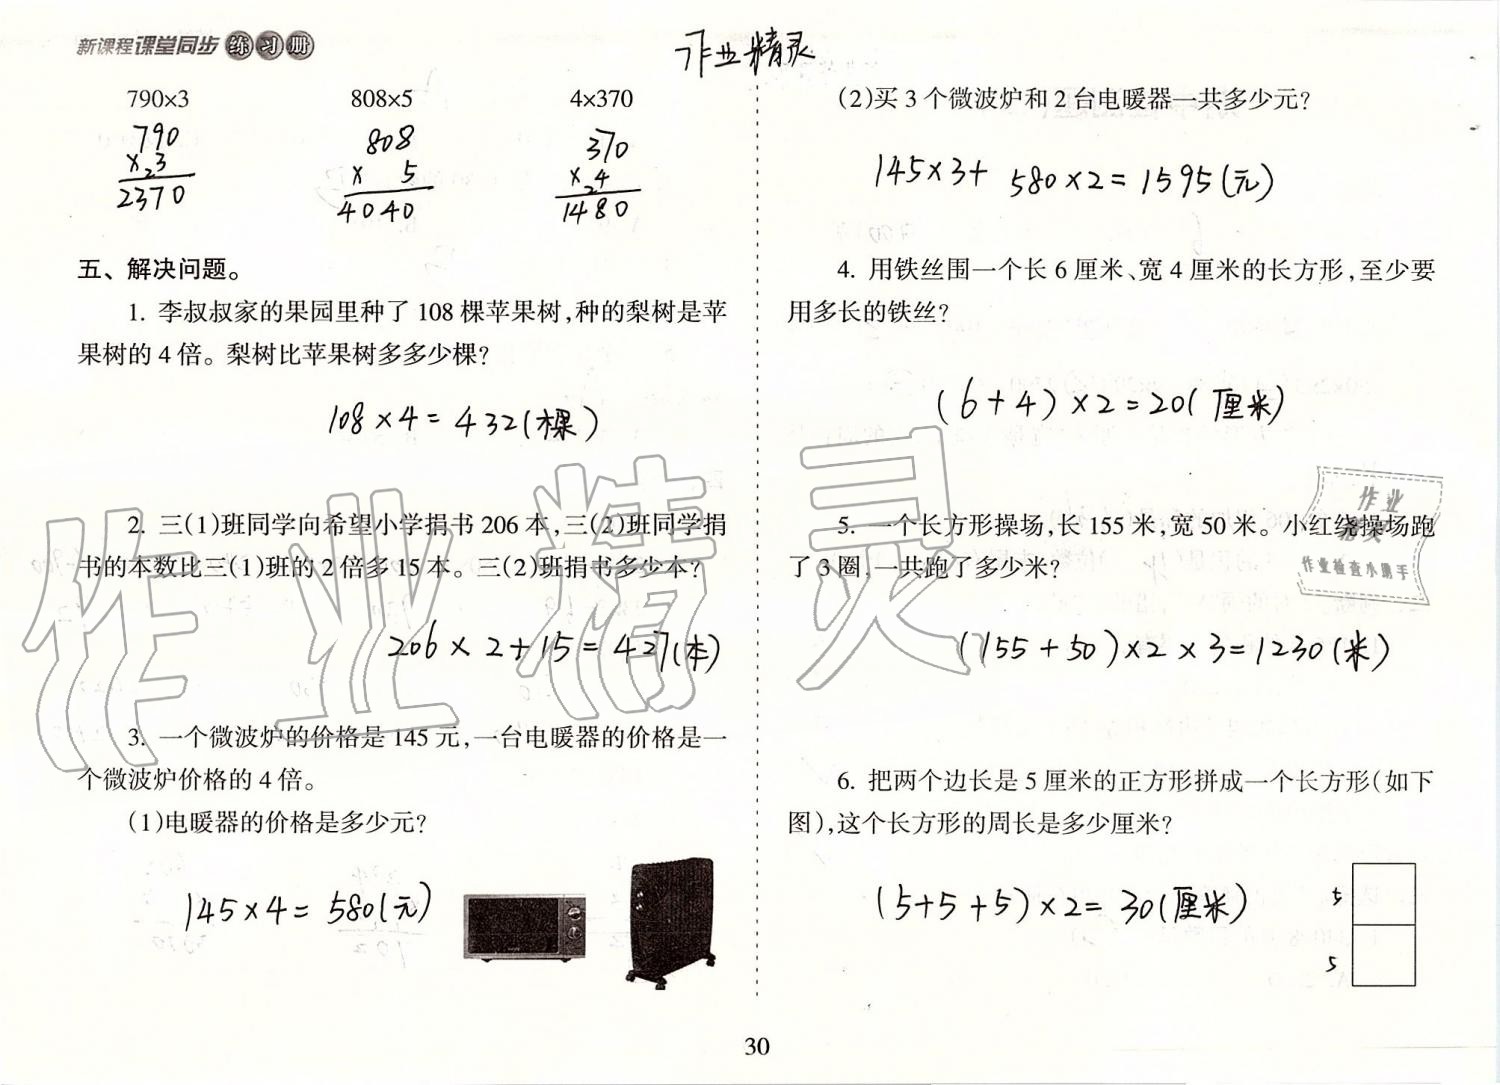 新课程课堂同步练习册
作业精灵
790×3 808×5 4×370
790 808 370
×23 × 5 ×24
2370 4040 1480
五、解决问题。
1. 李叔叔家的果园里种了 108 棵苹果树,种的梨树是苹
果树的 4 倍。梨树比苹果树多多少棵?
108×4=432(棵)
2. 三(1)班同学向希望小学捐书 206 本,三(2)班同学捐
书的本数比三(1)班的 2 倍多 15 本。三(2)班捐书多少本?
206×2+15=427(本)
3. 一个微波炉的价格是 145 元,一台电暖器的价格是一
个微波炉价格的 4 倍。
(1)电暖器的价格是多少元?
145×4=580(元)
(2)买 3 个微波炉和 2 台电暖器一共多少元?
145×3+580×2=1595(元)
4. 用铁丝围一个长 6 厘米、宽 4 厘米的长方形,至少要
用多长的铁丝?
(6+4)×2=20(厘米)
5. 一个长方形操场,长 155 米,宽 50 米。小红绕操场跑
了 3 圈,一共跑了多少米?
(155+50)×2×3=1230(米)
6. 把两个边长是 5 厘米的正方形拼成一个长方形(如下
图),这个长方形的周长是多少厘米?
(5+5+5)×2=30(厘米)
5
5
30
作业精灵
作业
精灵
作业检查小助手